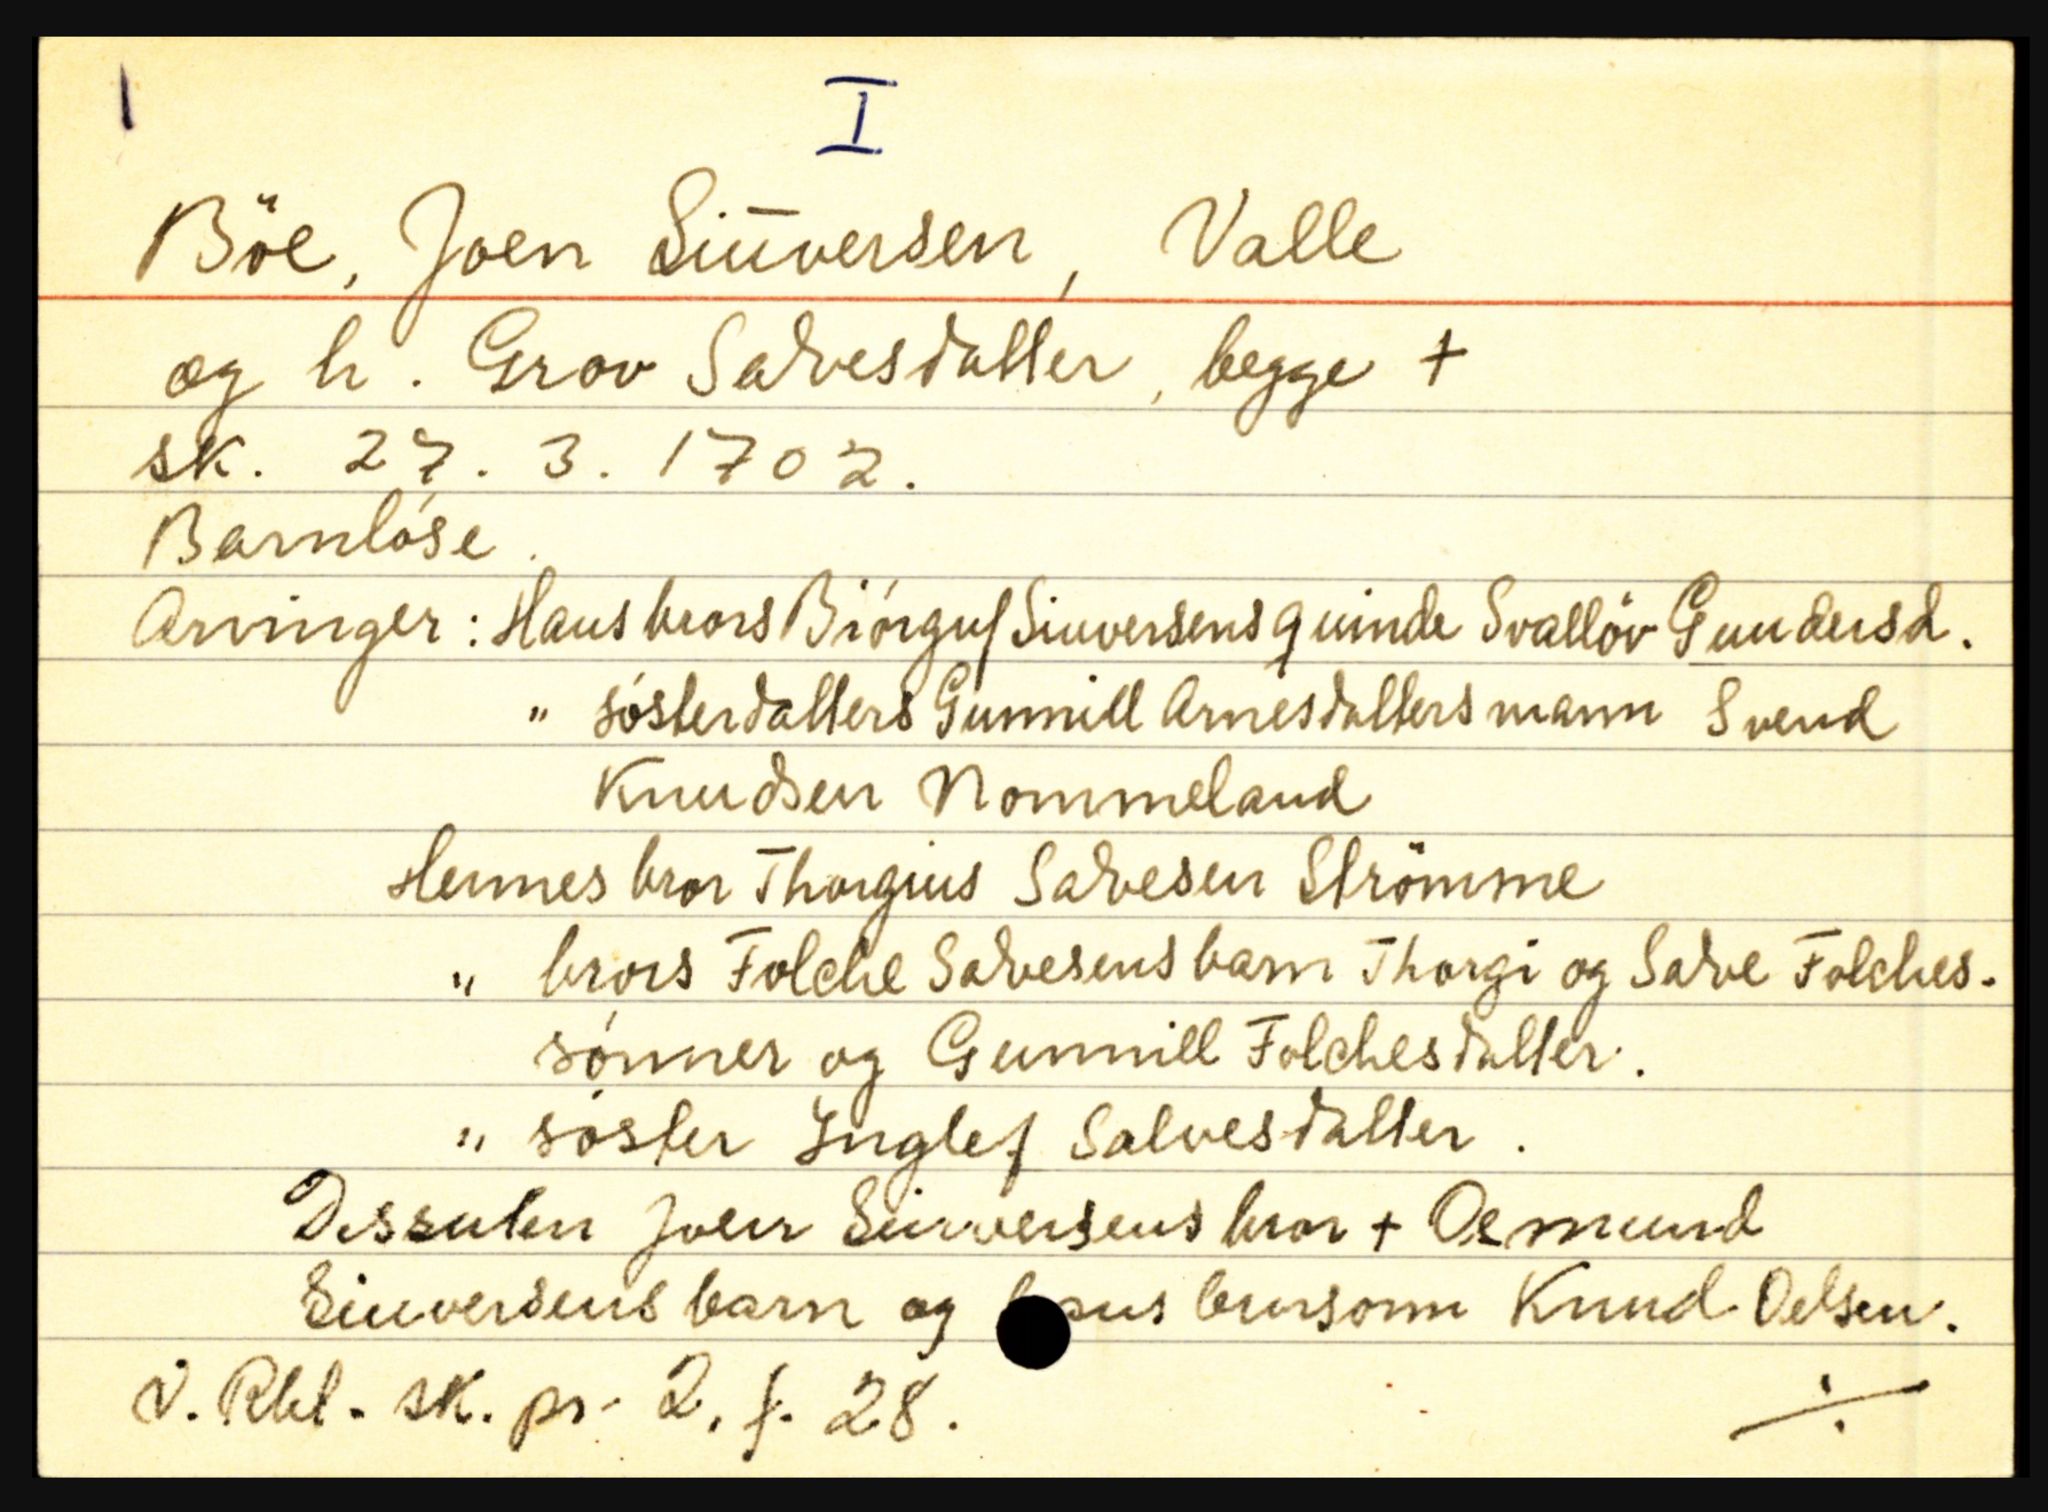 I
Böe, Joen Siuversen, Valle
og h. Grov Salvesdatter, begge +
sk. 27. 3. 1702.
Barnlöse.
Arvinger: Hans brors Biörguf Siuversens quinde Svallöv Gundersd.
" sösterdatters Gunnill Arnesdatters mann Svend
Knudsen Nommeland
Hennes bror Thorgius Salvesen Strömme
" brors Folche Salvesens barn Thorgi og Salve Folches-
sönner og Gunnill Folchesdatter.
" söster Inglef Salvesdatter.
Dessuten Joen Siuversens bror + Osmund
Siuversens barn og hans brorsønn Knud Oelsen.
V. Rbl. sk. pr. 2, f. 28. ÷